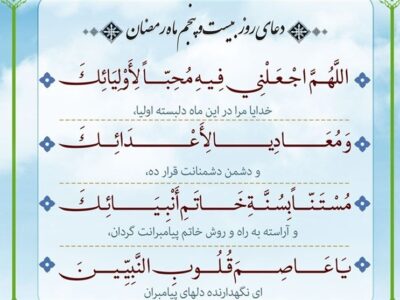 دعای روز بیست و پنجم ماه رمضان
اللَّهُمَّ اجْعَلْنِي فِيهِ مُحِبّاً لِأَوْلِيَائِكَ
خدایا مرا در این ماه دلبسته اولیا،
وَ مُعَادِياً لِأَعْدَائِكَ
و دشمن دشمنانت قرار ده،
مُسْتَنّاً بِسُنَّةِ خَاتَمِ أَنْبِيَائِكَ
و آراسته به راه و روش خاتم پیامبرانت گردان،
يَا عَاصِمَ قُلُوبِ النَّبِيِّينَ
ای نگهدارنده دلهای پیامبران